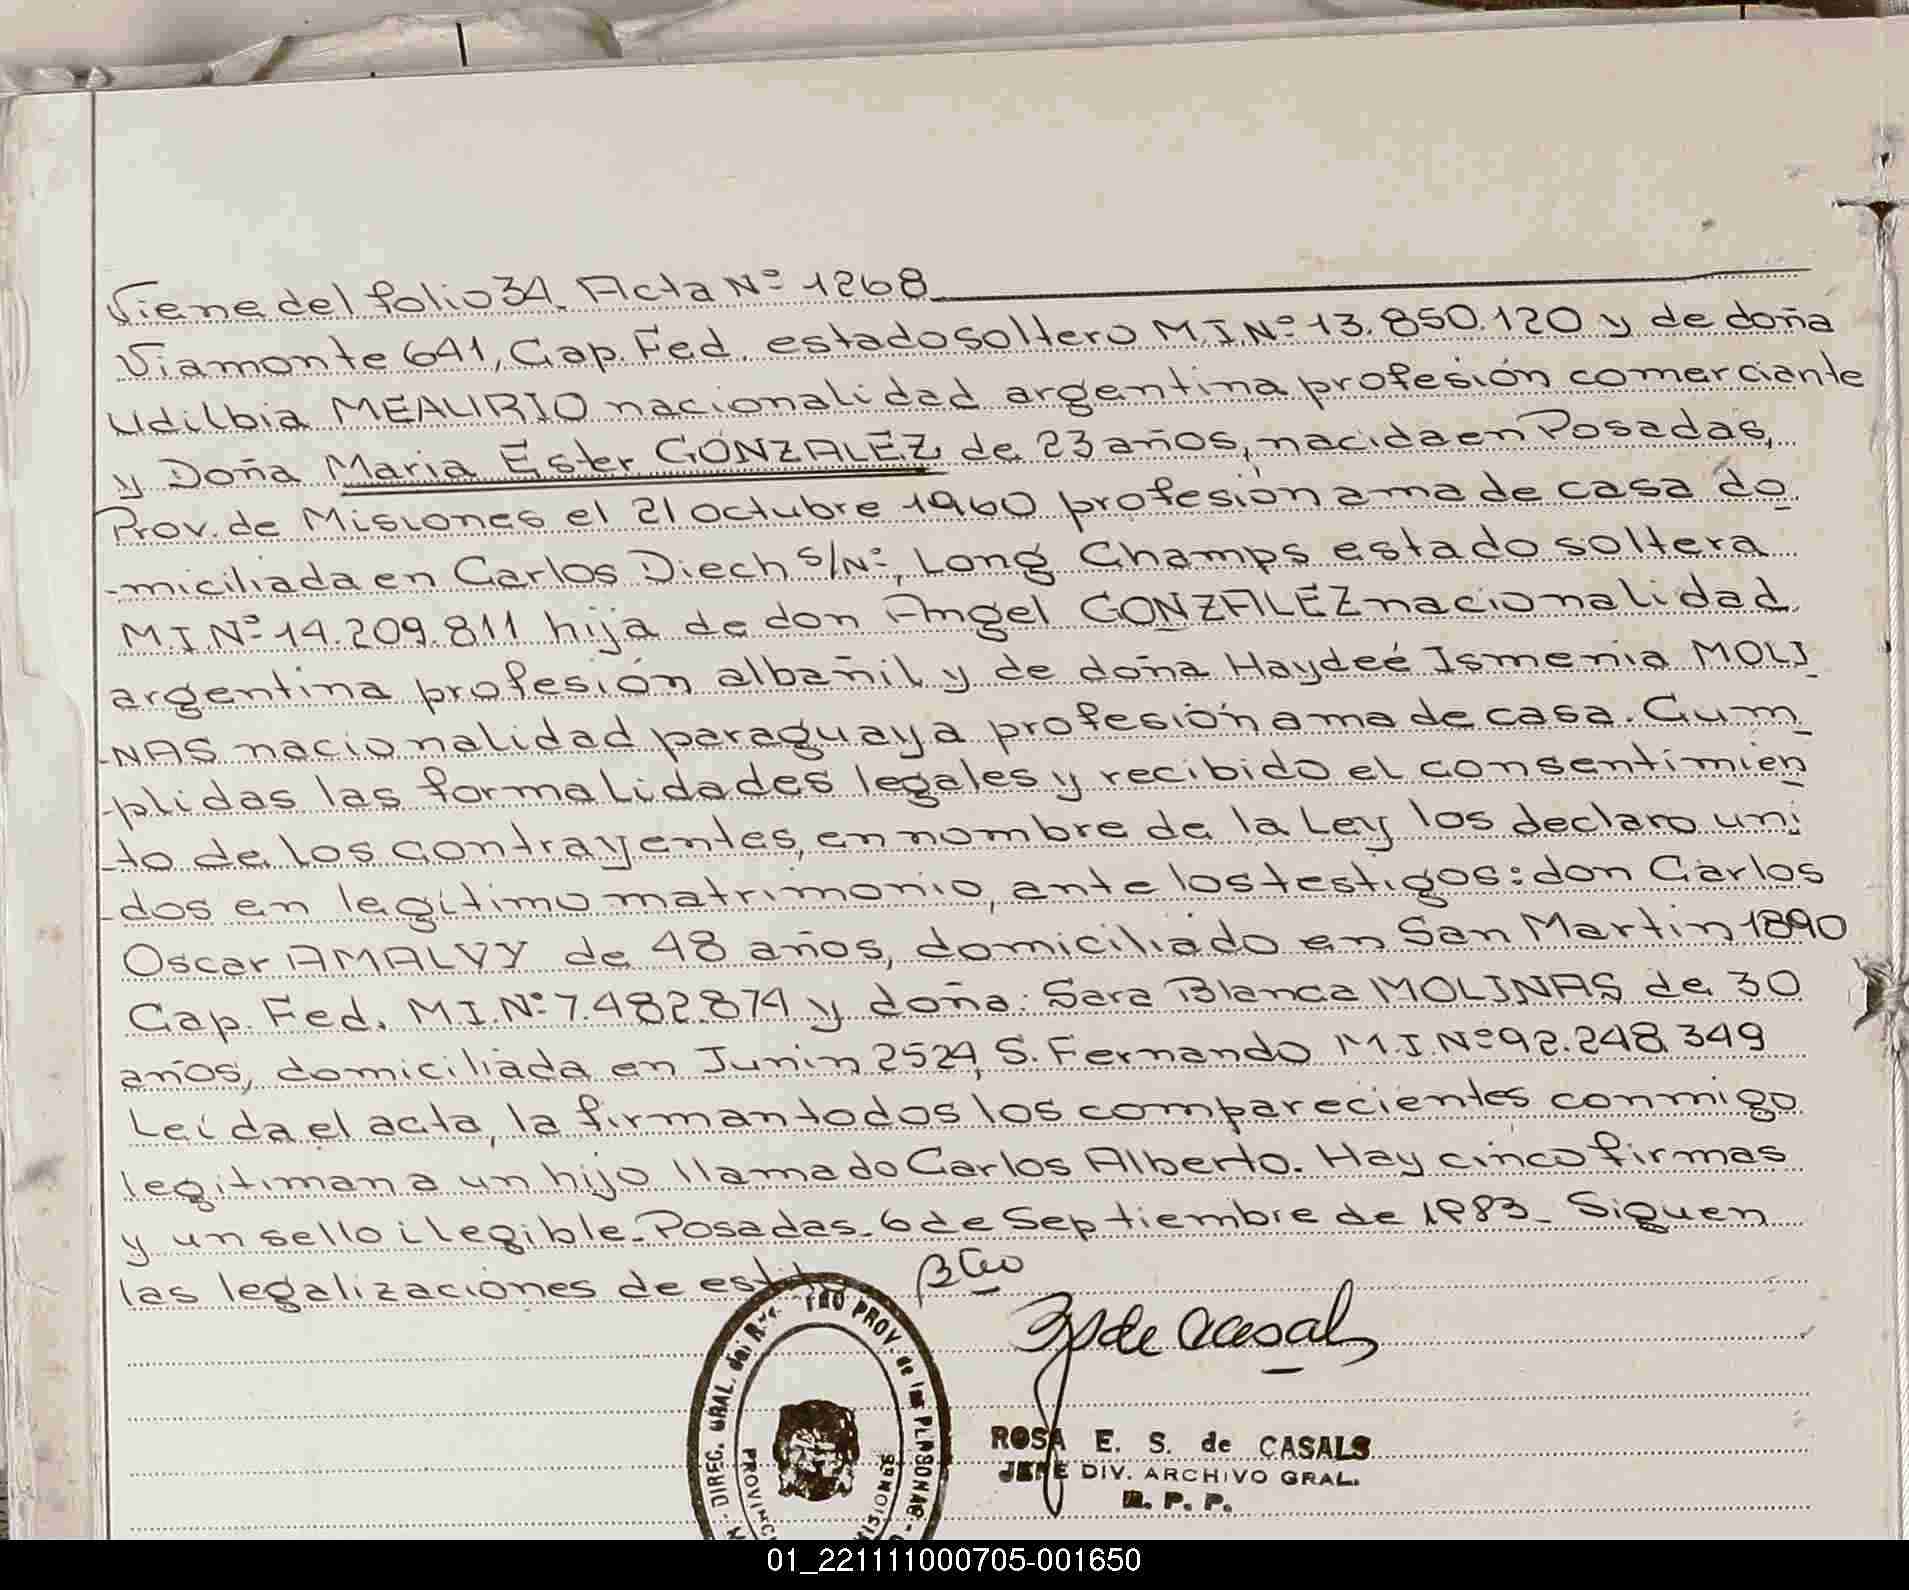 Viene del folio 34. Acta Nº 1268
Viamonte 641, Cap. Fed. estado soltero M.I.Nº 13.850.120 y de doña
Udilbia MEAURIO nacionalidad argentina profesión comerciante
y Doña Maria Ester GONZALEZ de 23 años, nacida en Posadas,
Prov. de Misiones el 21 octubre 1960 profesión ama de casa do
-miciliada en Carlos Diech S/Nº, Long Champs estado soltera
M.I.Nº 14.209.811 hija de don Angel GONZALEZ nacionalidad
argentina profesión albañil y de doña Haydeé Ismenia MOLI
-NAS nacionalidad paraguaya profesión ama de casa. Cum
-plidas las formalidades legales y recibido el consentimien
-to de los contrayentes, en nombre de la Ley los declaro uni
-dos en legítimo matrimonio, ante los testigos: don Carlos
Oscar AMALVY de 48 años, domiciliado en San Martin 1890
Cap. Fed. M.I.Nº 7.482.874 y doña: Sara Blanca MOLINAS de 30
años, domiciliada en Junin 2524, S. Fernando M.I.Nº 92.248.349
Leída el acta, la firman todos los comparecientes conmigo
legitiman a un hijo llamado Carlos Alberto. Hay cinco firmas
y un sello ilegible. Posadas. 6 de Septiembre de 1983. Siguen
las legalizaciones de estilo
DIREC. GRAL. del PROV. de las PERSONAS
PROVINCI MISIONES
de Casals
ROSA E. S. de CASALS
JEFE DIV. ARCHIVO GRAL.
R. P. P.
01_221111000705-001650